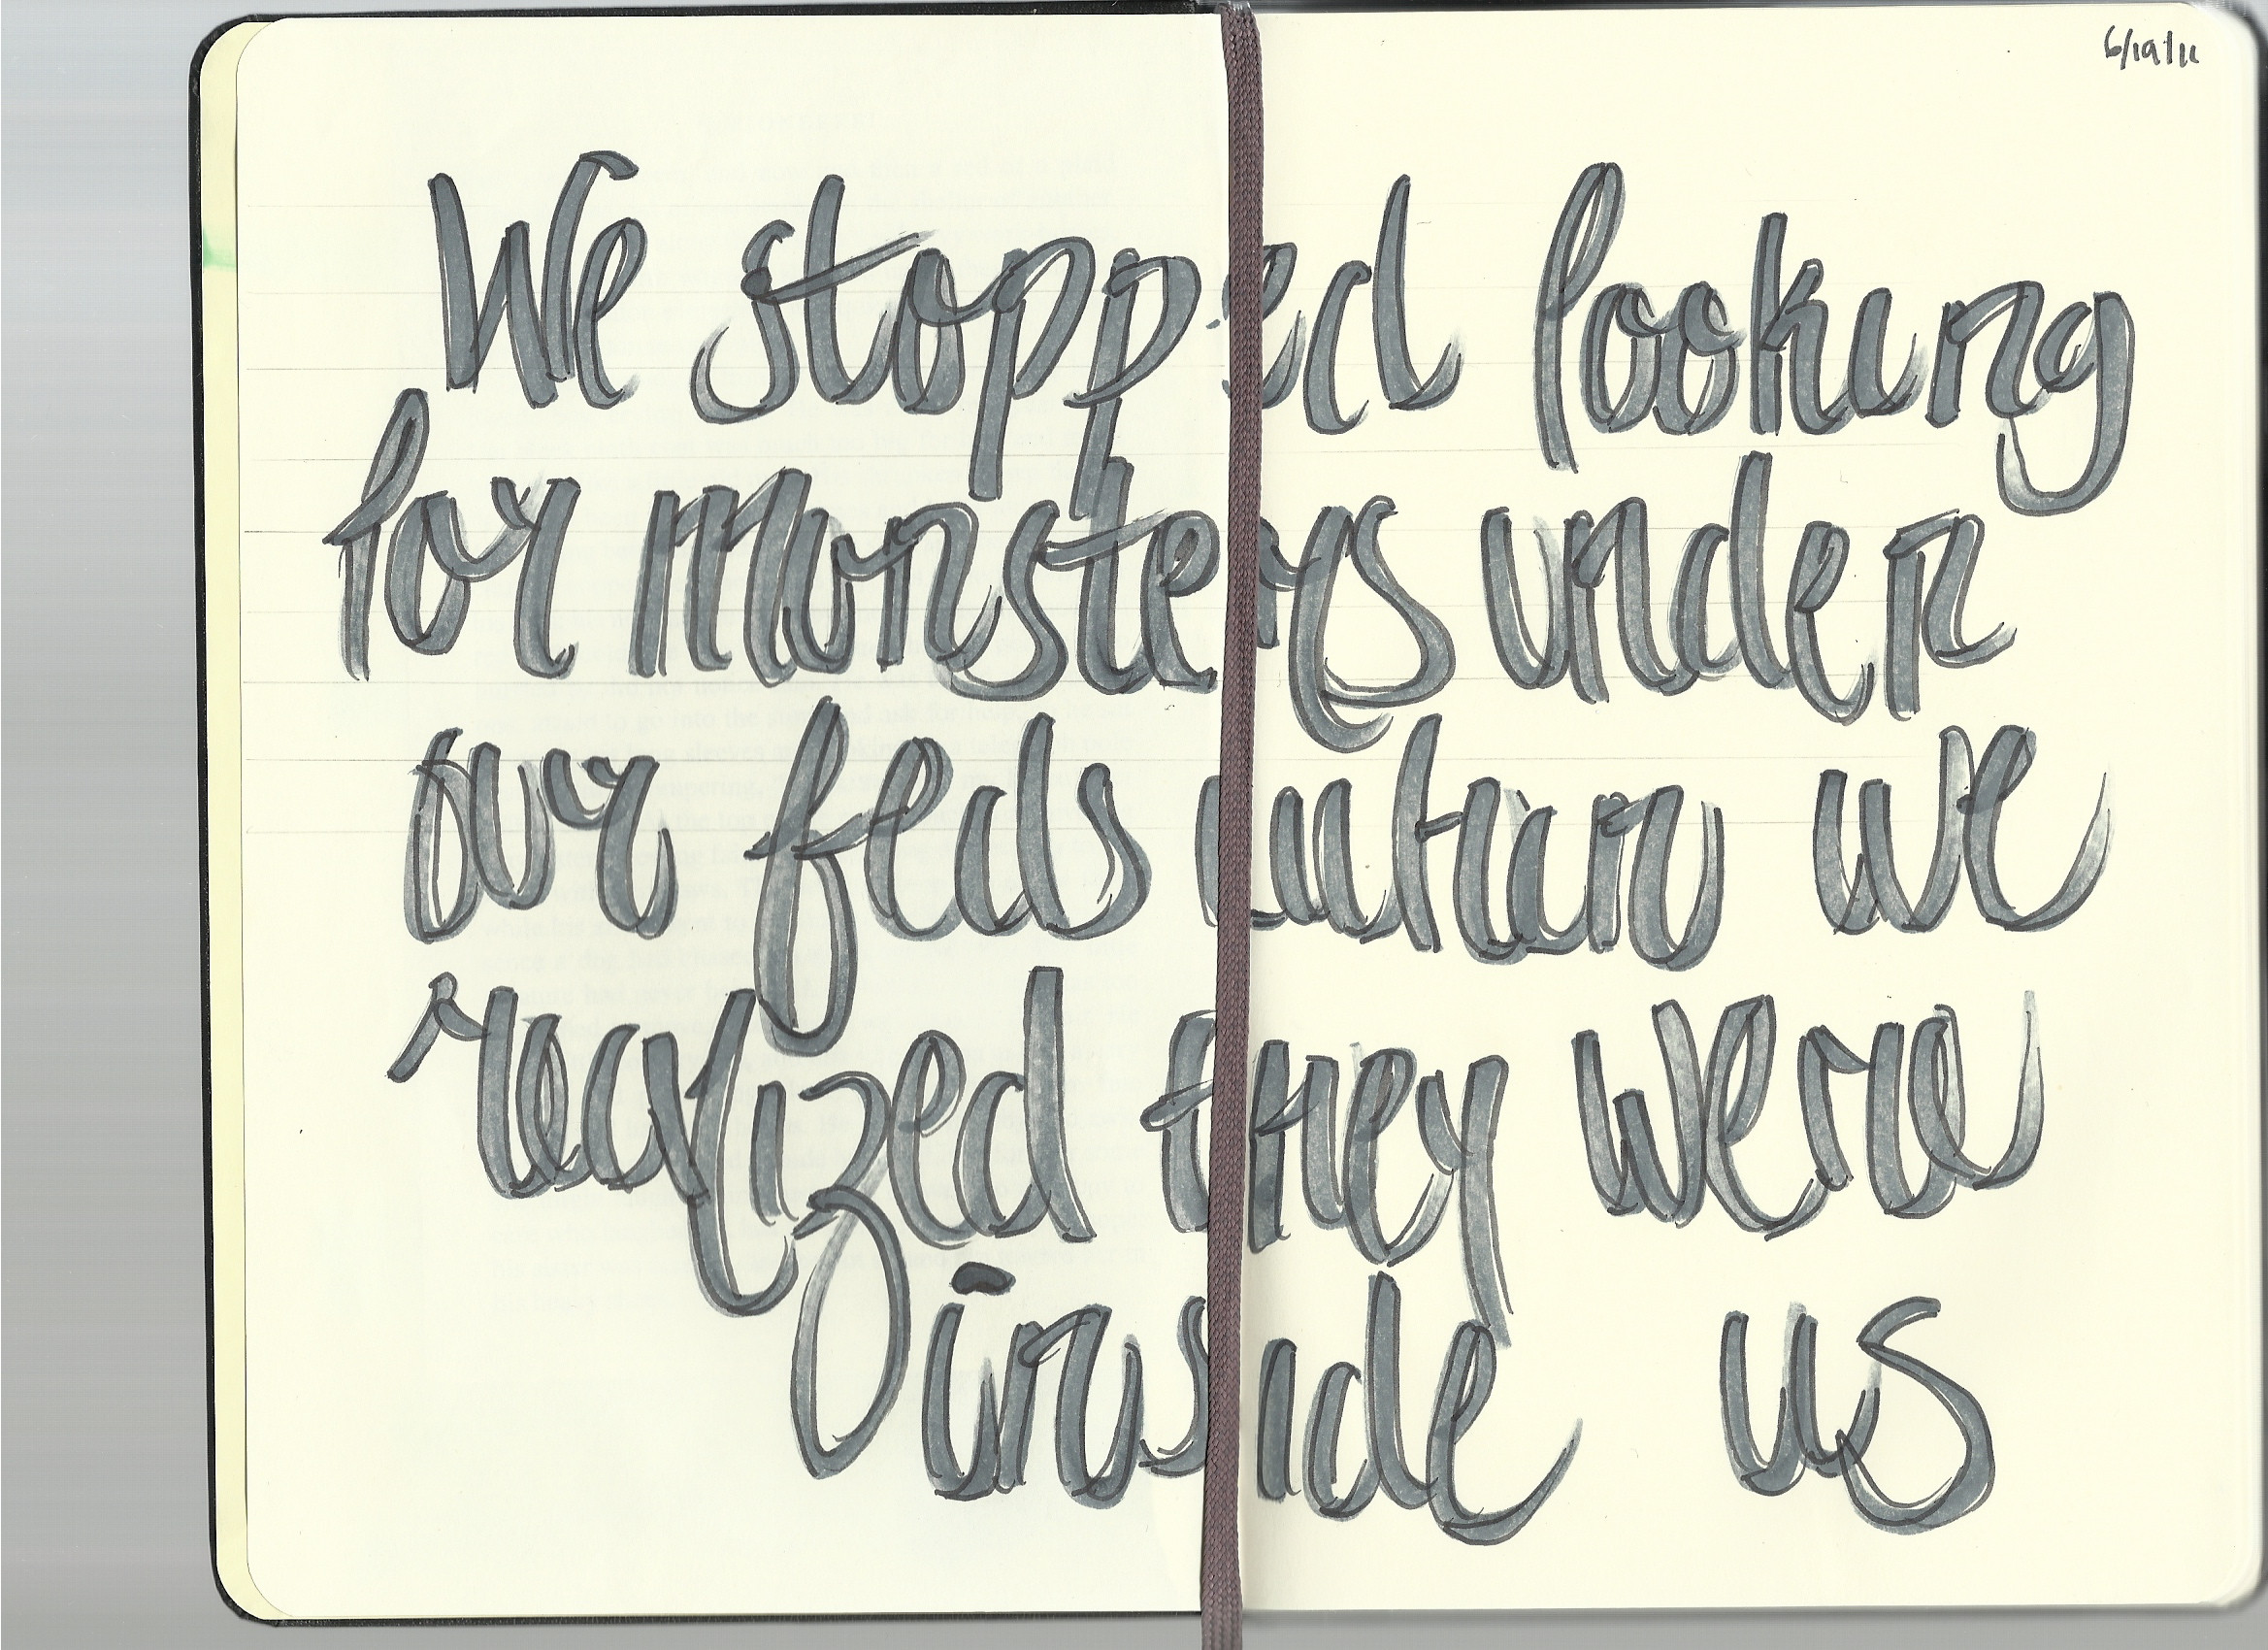 6/19/11
We stopped looking
for monsters under
our beds when we
realized they were
inside us